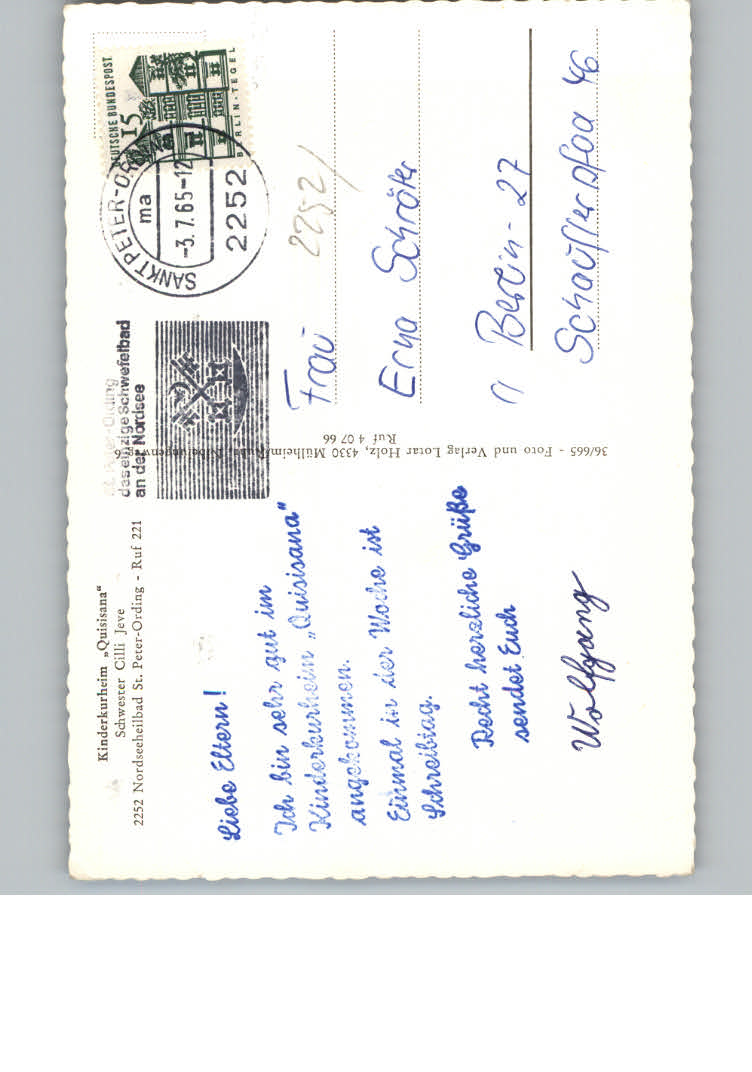 Kinderkurheim „Quisisana“
Schwester Cilli Jeve
2252 Nordseeheilbad St. Peter-Ording - Ruf 221
Liebe Eltern!
Ich bin sehr gut im
Kinderkurheim „Quisisana“
angekommen.
Einmal in der Woche ist
Schreibtag.
Recht herzliche Grüße
sendet Euch
Wolfgang
36/665 - Foto und Verlag Lotar Holz, 4330 Mülheim/Ruhr
Ruf 4 07 66
das einzige Schwefelbad
an der Nordsee
SANKT PETER-OR
ma
-3.7.65-12
2252
DEUTSCHE BUNDESPOST
15
BERLIN-TEGEL
2252/
Frau
Erna Schröter
1 Berlin - 27
46